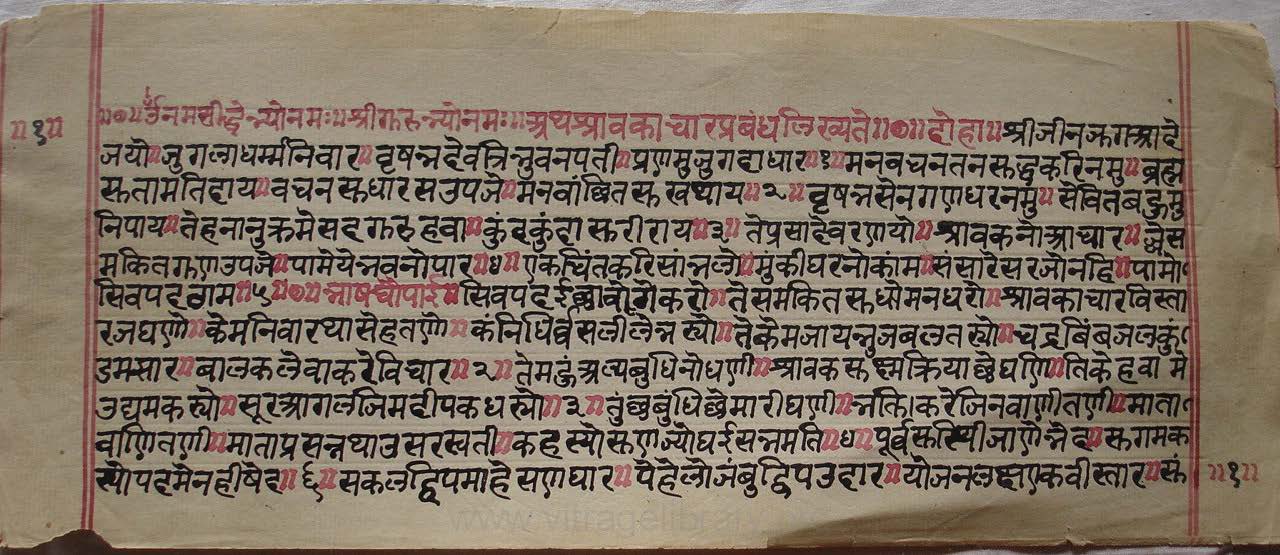 ॥१॥
॥०॥ र्उनमसीद्धेभ्योनमः॥श्रीगरुभ्योनमः॥अथश्रावकाचारप्रबंधलिख्यते॥०॥दोहा॥श्रीजीनजगआदे
जयो॥जुगलाधर्म्मनिवार॥वृषभदेवत्रिभुवनपती॥प्रणमुजुगदाधार॥१॥मनवचनतनसुद्धकरिनमु॥ब्रह्म
सुतामतिदाय॥वचनसुधारसउपजे॥मनवांछितसुखथाय॥२॥वृषभसेनगणधरनमुं॥सेवितबहुमु
निपाय॥तेहनानुक्रमेसदगरुहवा॥कुंदकुंदासुरीराय॥३॥तेप्रसादेवरणयो॥श्रावकनोआचार॥जेस
मकितगुणउपजे॥पामेयेभवनोपार॥४॥एकचिंतकरिसांभलो॥मुकीघरनोकांम॥संसारेसरजोनहि॥पामो
सिवपदठाम॥५॥०॥भाषचोपाई॥सिवपदईछावोगेकरो॥तेसमकितसुधोमनधरो॥श्रावकाचारविस्ता
रजघणो॥केमनिवारथासेहतणो॥कंनिधिर्व्वसलीलेभस्यो॥तेकेमजायभुजबलतस्यो॥चद्रबिंबजलकुं
डमसार॥बालकलेवाकरेविचार॥२॥तेमहुंअल्पबुधिनोधणी॥श्रावकसुक्ष्मक्रियाछेघणि॥तिकेहवा मे
उद्यमकस्यो॥सूरआगलजिमदीपकधस्यो॥३॥तुंछबुंधिछेमारीघणी॥भक्तिकरेजिनवाणीतणी॥माता
वाणितणी॥माताप्रसन्नथाउसरस्वती॥कहस्योसुणज्योघईसन्नमति॥४॥पूर्वसुरिषीजाणेभेद॥सुगमक
स्योपदमेनहीषेद॥६॥सकलद्विपमाहेसणघार॥पेहेलोजंबुद्विपउदार॥योजनलक्षएकवीस्तार॥सुं
॥१॥
www.vitragelibrary